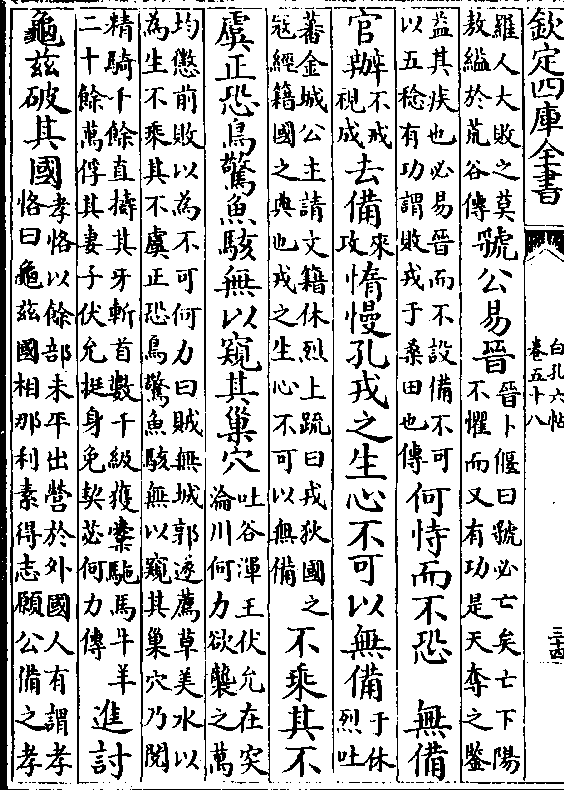 欽定四庫全書
白孔六帖
卷五十八
三十四
羅人大敗之莫
敖縊於荒谷傳
虢公易晉
晉卜偃曰虢必亡矣亡下陽
不懼而又有功是天奪之鑒
益其疾也必易晉而不設備不可
以五稔有功謂敗戎于桑田也傳
何恃而不恐 無備
官辦
不戒
視成
去備
來
攻
惰慢孔戎之生心不可以無備
于休
烈吐
蕃金城公主請文籍休烈上疏曰戎狄國之
寇經籍國之典也戎之生心不可以無備
不乘其不
虞正恐鳥驚魚駭無以窺其巢穴
吐谷渾王伏允在突
淪川何力欲襲之萬
均懲前敗以為不可何力曰賊無城郭逐薦草美水以
為生不乘其不虞正恐鳥驚魚駭無以窺其巢穴乃閱
精騎千餘直擣其牙斬首數千級獲橐駞馬牛羊
二十餘萬俘其妻子伏允挺身免契苾何力傳
進討
龜兹破其國
孝恪以餘部未平出營於外國人有謂孝
恪曰龜兹國相那利素得志願公備之孝